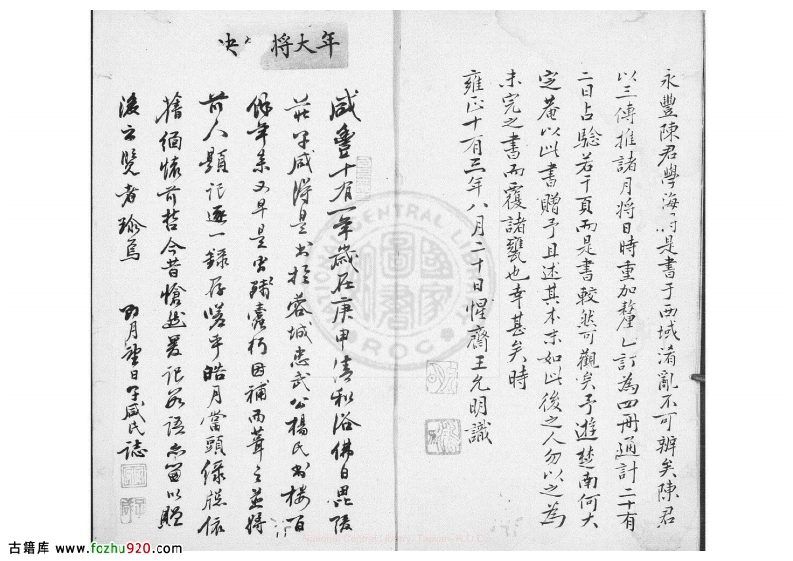 永豐陳君學海將是書于西域淆亂不可辨矣陳君
以三傳推諸月將日時重加釐訂為四冊通計二十有
二日占驗若干頁而是書較然可觀矣予遊楚南何大
定菴以此書贈予且述其本末如此後之人勿以之為
未完之書而覆諸甕也幸甚矣時
雍正十有三年八月二十日惺齋王允明識
年大將 決
咸豐十有一年歲在庚申清和浴佛日毘陵
莊子咸得是書於蓉城忠武公楊氏書樓百
餘年矣又早是書殘蠹朽因補而葺之並將
前人題記逐一錄存嗟乎皓月當頭綠牕依
舊緬懷前哲今昔愴然爰記數語尚留以貽
後之覽者珍焉 四月望日子咸氏誌
CENTRAL LI
國家圖書
ROC
National Central Library, Taiwan, R.O.C
古籍库 www.fozhu920.com